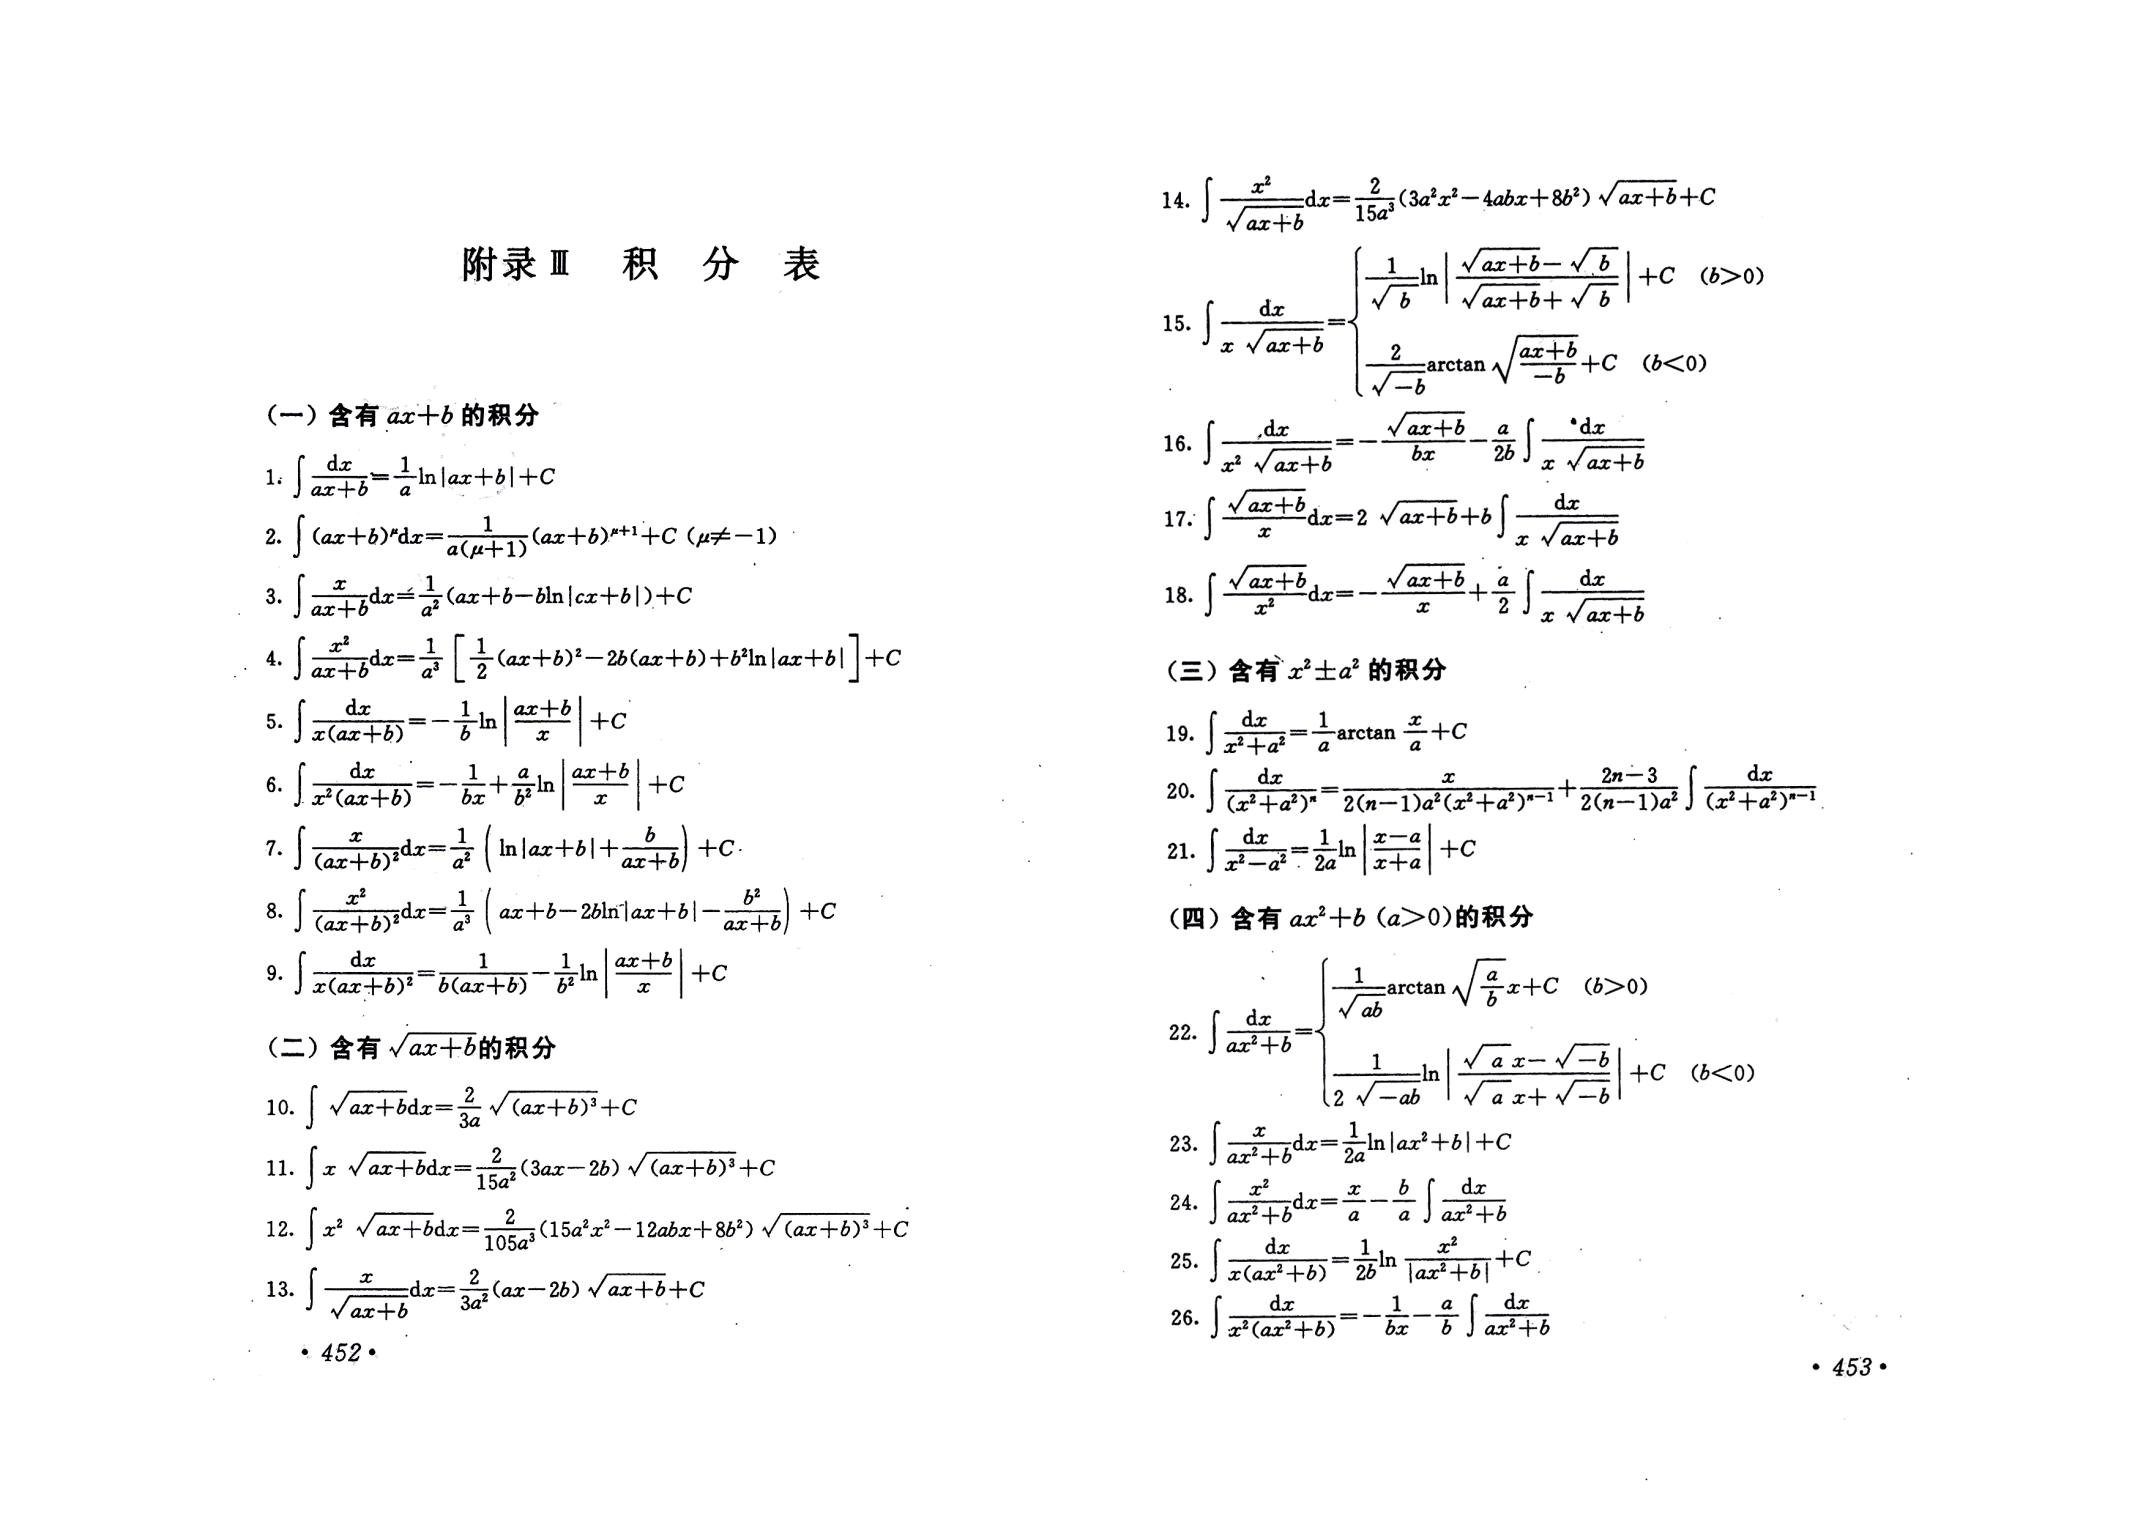 附录Ⅲ 积 分 表
（一）含有 ax+b 的积分
1. ∫ dx/(ax+b) = (1/a)ln|ax+b|+C
2. ∫ (ax+b)^μ dx = 1/(a(μ+1)) (ax+b)^(μ+1)+C (μ≠-1)
3. ∫ x/(ax+b) dx = (1/a²)(ax+b-bln|cx+b|)+C
4. ∫ x²/(ax+b) dx = (1/a³)[(1/2)(ax+b)²-2b(ax+b)+b²ln|ax+b|]+C
5. ∫ dx/(x(ax+b)) = -(1/b)ln|(ax+b)/x|+C
6. ∫ dx/(x²(ax+b)) = -1/(bx)+(a/b²)ln|(ax+b)/x|+C
7. ∫ x/(ax+b)² dx = (1/a²)(ln|ax+b|+b/(ax+b))+C
8. ∫ x²/(ax+b)² dx = (1/a³)(ax+b-2bln|ax+b|-b²/(ax+b))+C
9. ∫ dx/(x(ax+b)²) = 1/(b(ax+b))-(1/b²)ln|(ax+b)/x|+C
（二）含有 √(ax+b) 的积分
10. ∫ √(ax+b) dx = (2/(3a))√((ax+b)³)+C
11. ∫ x√(ax+b) dx = (2/(15a²))(3ax-2b)√((ax+b)³)+C
12. ∫ x²√(ax+b) dx = (2/(105a³))(15a²x²-12abx+8b²)√((ax+b)³)+C
13. ∫ x/√(ax+b) dx = (2/(3a²))(ax-2b)√(ax+b)+C
· 452 ·
14. ∫ x²/√(ax+b) dx = (2/(15a³))(3a²x²-4abx+8b²)√(ax+b)+C
15. ∫ dx/(x√(ax+b)) = { (1/√b)ln|(√(ax+b)-√b)/(√(ax+b)+√b)|+C (b>0)
(2/√(-b))arctan√((ax+b)/(-b))+C (b<0)
16. ∫ dx/(x²√(ax+b)) = -√(ax+b)/(bx)-(a/(2b))∫ dx/(x√(ax+b))
17. ∫ √(ax+b)/x dx = 2√(ax+b)+b∫ dx/(x√(ax+b))
18. ∫ √(ax+b)/x² dx = -√(ax+b)/x+(a/2)∫ dx/(x√(ax+b))
（三）含有 x²±a² 的积分
19. ∫ dx/(x²+a²) = (1/a)arctan(x/a)+C
20. ∫ dx/(x²+a²)^n = x/(2(n-1)a²(x²+a²)^(n-1))+(2n-3)/(2(n-1)a²)∫ dx/(x²+a²)^(n-1)
21. ∫ dx/(x²-a²) = (1/(2a))ln|(x-a)/(x+a)|+C
（四）含有 ax²+b (a>0)的积分
22. ∫ dx/(ax²+b) = { (1/√(ab))arctan√(a/b)x+C (b>0)
(1/(2√(-ab)))ln|(√a x-√(-b))/(√a x+√(-b))|+C (b<0)
23. ∫ x/(ax²+b) dx = (1/(2a))ln|ax²+b|+C
24. ∫ x²/(ax²+b) dx = x/a-(b/a)∫ dx/(ax²+b)
25. ∫ dx/(x(ax²+b)) = (1/(2b))ln(x²/|ax²+b|)+C
26. ∫ dx/(x²(ax²+b)) = -1/(bx)-(a/b)∫ dx/(ax²+b)
· 453 ·